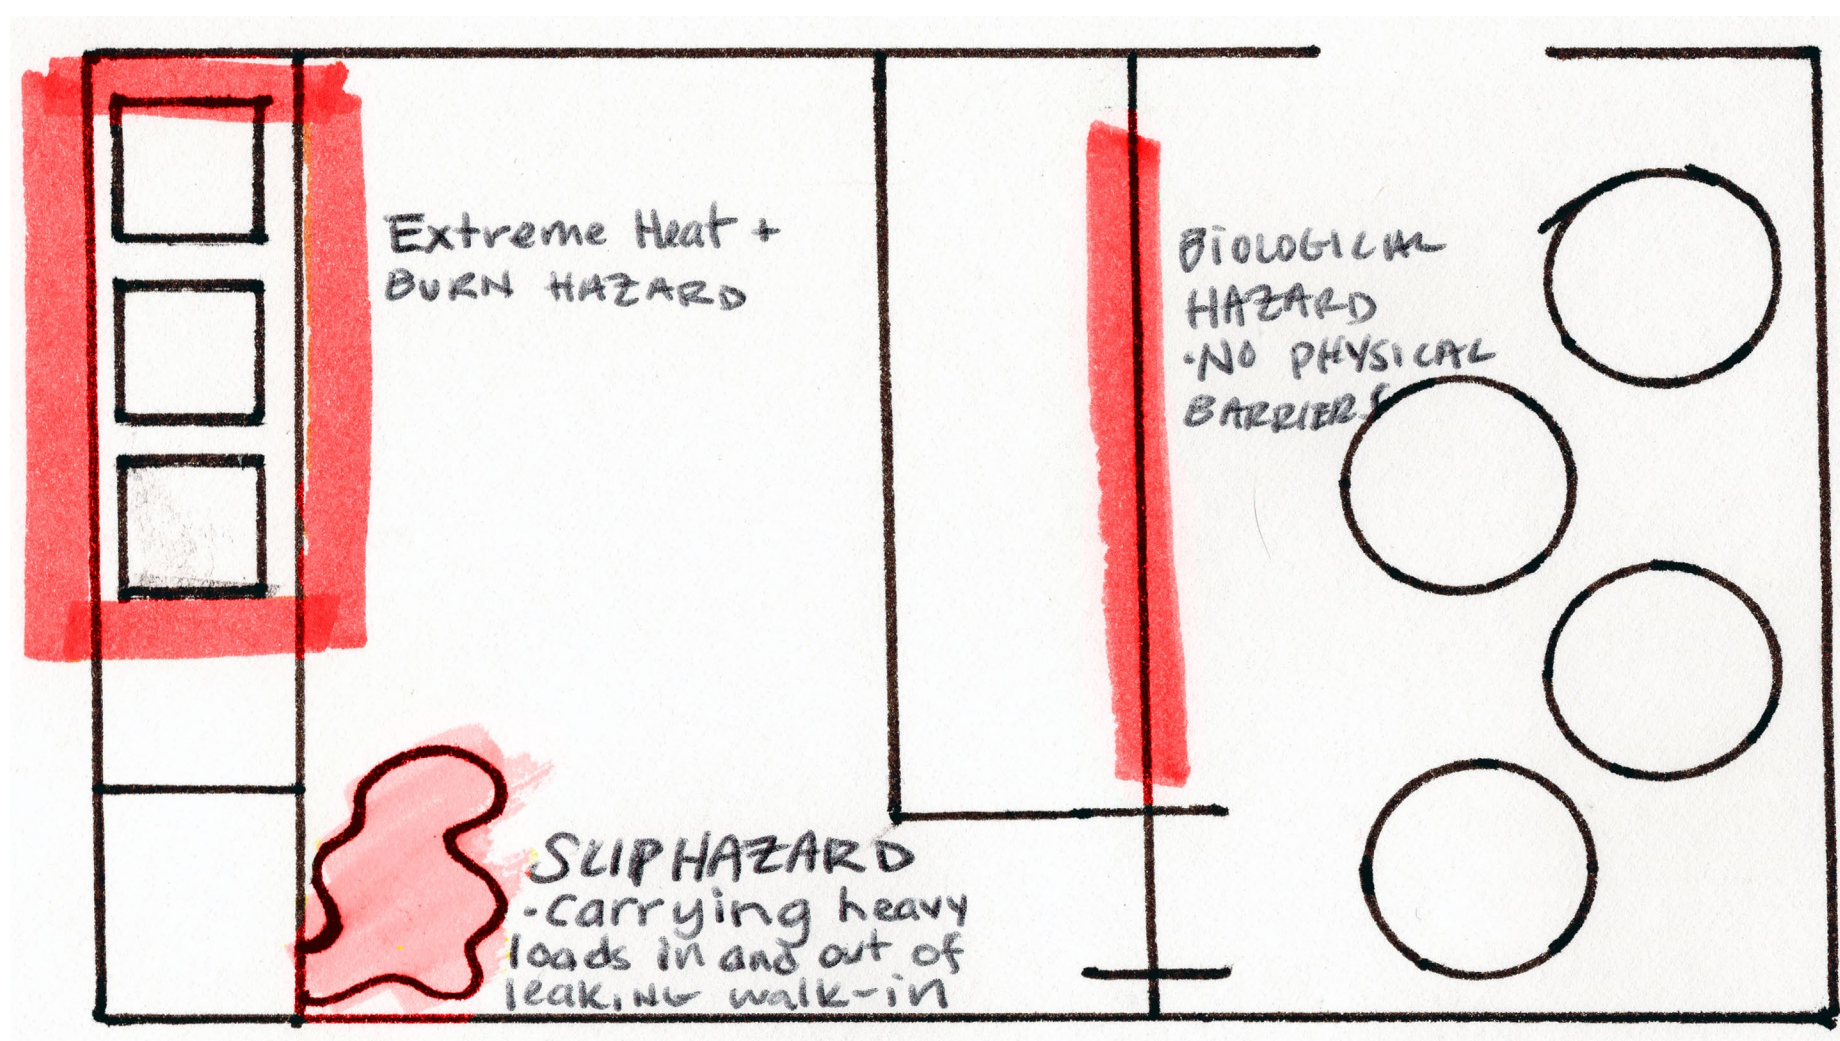 Extreme Heat +
BURN HAZARD
BIOLOGICAL
HAZARD
·NO PHYSICAL
BARRIERS
SLIP HAZARD
-Carrying heavy
loads in and out of
leaking walk-in